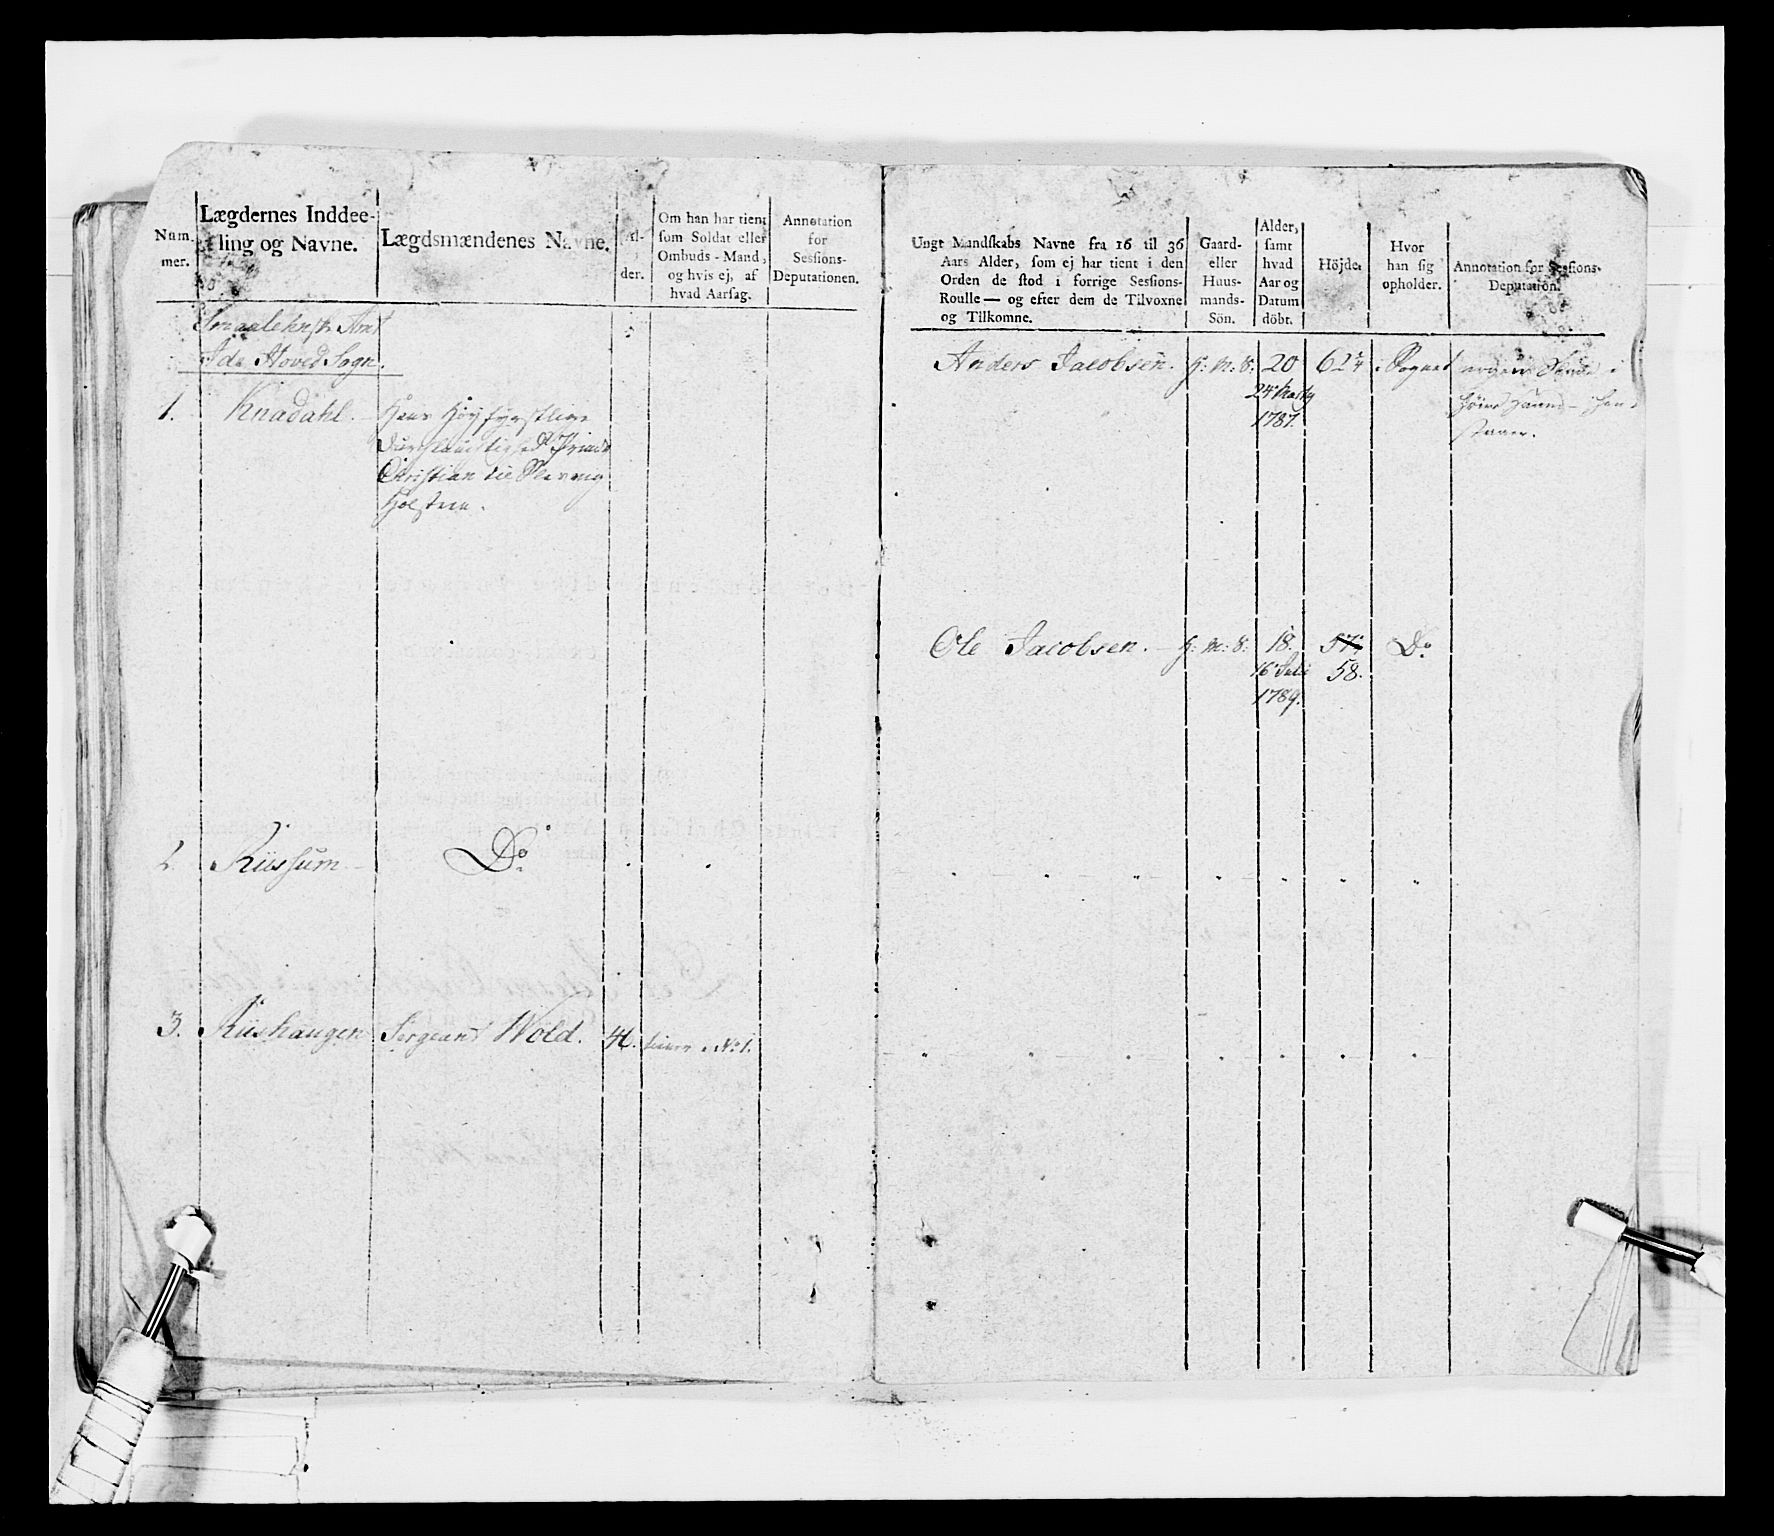 Num-
mer.
Lægdernes Inddee-
ling og Navne.
Lægdsmændenes Navne.
Al-
der.
Om han har tient
som Soldat eller
Ombuds-Mand,
og hvis ej, af
hvad Aarsag.
Annotation
for
Sessions-
Deputationen.
Smaalehnske Amt
Ide Hoved Sogn.
1. Knadahl.
Hans Høyfyrstlige
Durchlauctighed Prinds
Christian til Slesvig
Holsteen.
2. Riissum - Do
3. Riishaugen Sergeant Wold. 46. No 1.
Ungt Mandskabs Navne fra 16 til 36
Aars Alder, som ej har tient i den
Orden de stod i forrige Sessions-
Roulle — og efter dem de Tilvoxne
og Tilkomne.
Gaard-
eller
Huus-
mands-
Sön.
Alder,
samt
hvad
Aar og
Datum
döbt.
Höjde.
Hvor
han sig
opholder.
Annotation for Sessions-
Deputation.
Anders Jacobsen. H: M: S: 20 62 i Sognet
24 Martz
1787.
Ole Jacobsen. H: M: S: 18. 57. Do
16 Julii 58.
1789.